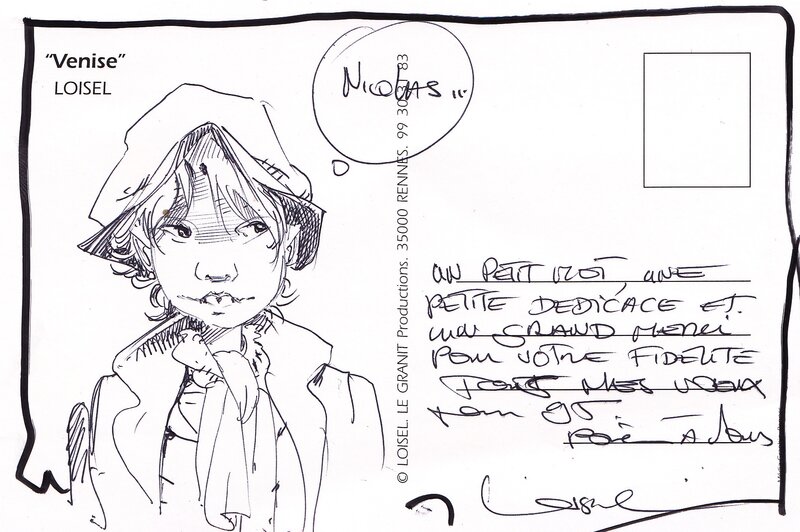 “Venise”
LOISEL
NICOLAS...
© LOISEL. LE GRANIT Productions. 35000 RENNES. 99 30 83
UN PETIT MOT, UNE
PETITE DEDICACE ET
UN GRAND MERCI
POUR VOTRE FIDELITE
TOUS MES VOEUX
POUR 95
A VOUS
Loisel